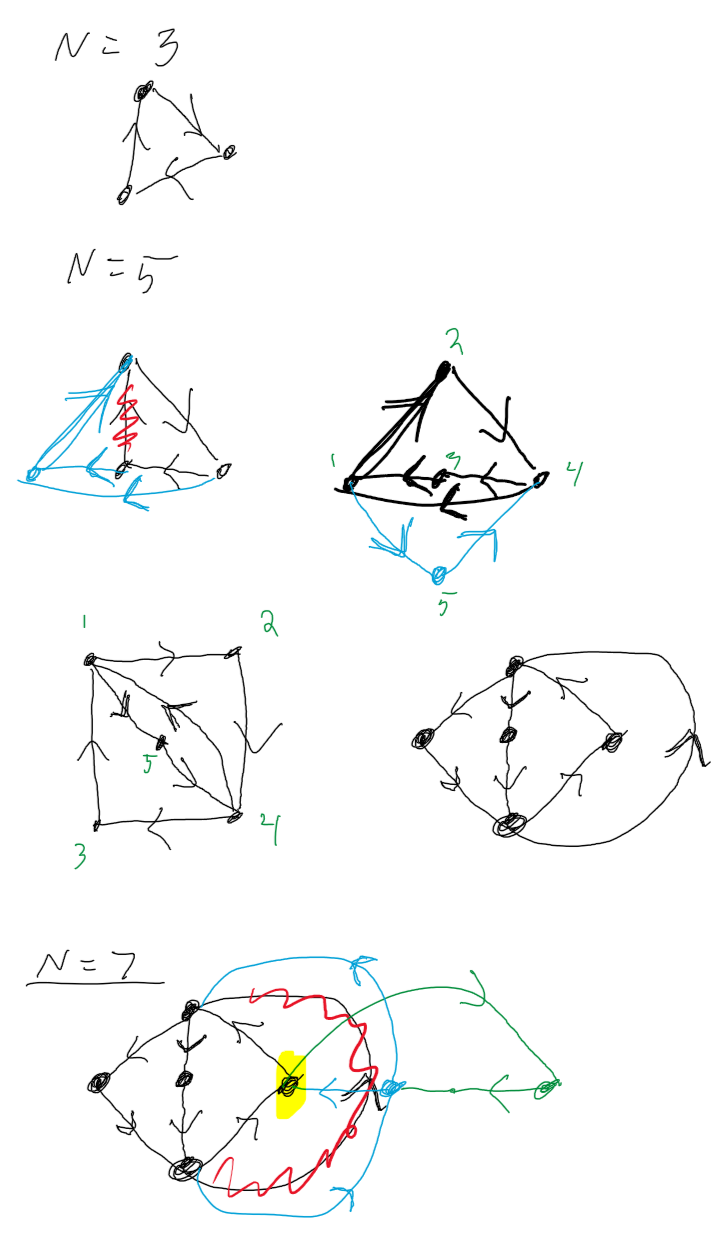 N = 3
N = 5
2
1 3 4
5
1 2
5
3 4
N = 7